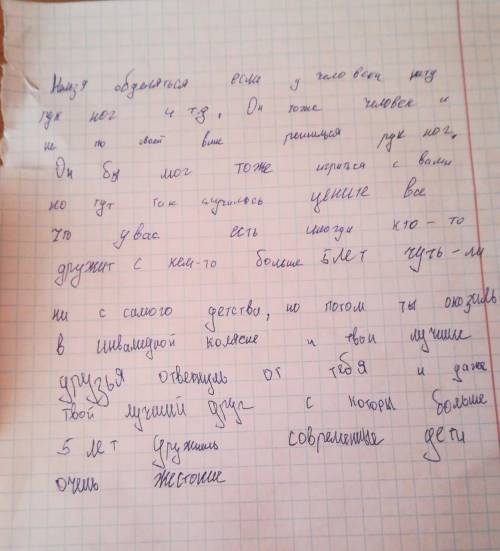 Нельзя обделяться если у человека нету
рук ног и тд, Он тоже человек и
не по своей вине решился рук ног,
Он бы мог тоже играться с вами
но тут так случилось цените все
что у вас есть иногда кто-то
дружит с кем-то больше 5 лет чуть-ли
ни с самого детства, но потом ты оказиль
в инвалидной коляске и твои лучшие
друзья отвекнуль от тебя и даже
твой лучший друг с которы больше
5 лет дружиль современные дети
очень жестокие